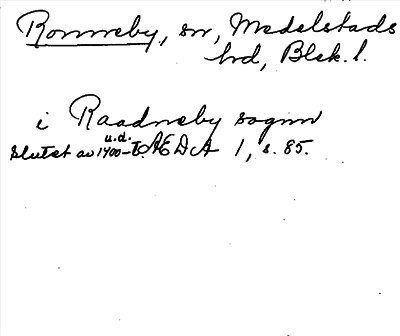 Ronneby, sn, Medelstads
hd, Blek. l.
i Raadneby sognn
u.d.
slutet av 1400-t. ÆDA 1, s. 85.